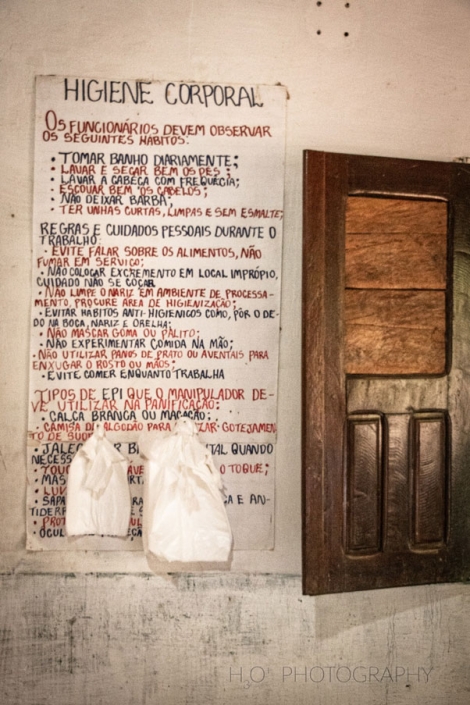 HIGIENE CORPORAL
OS FUNCIONÁRIOS DEVEM OBSERVAR
OS SEGUINTES HÁBITOS:
• TOMAR BANHO DIARIAMENTE;
• LAVAR E SECAR BEM OS PÉS;
• LAVAR A CABEÇA COM FREQUÊCIA;
• ESCOVAR BEM OS CABELOS;
• NÃO DEIXAR BARBA;
• TER UNHAS CURTAS, LIMPAS E SEM ESMALTE;
REGRAS E CUIDADOS PESSOAIS DURANTE O
TRABALHO:
• EVITE FALAR SOBRE OS ALIMENTOS, NÃO
FUMAR EM SERVIÇO;
• NÃO COLOCAR EXCREMENTO EM LOCAL IMPRÓPIO,
CUIDADO NÃO SE COÇAR
• NÃO LIMPE O NARIZ EM AMBIENTE DE PROCESSA-
MENTO, PROCURE ÁREA DE HIGIENIZAÇÃO;
• EVITAR HÁBITOS ANTI-HIGIENICOS COMO, PÔR O DE-
DO NA BOCA, NARIZ E ORELHA;
• NÃO MASCAR GOMA OU PALITO;
• NÃO EXPERIMENTAR COMIDA NA MÃO;
• NÃO UTILIZAR PANOS DE PRATO OU AVENTAIS PARA
ENXUGAR O ROSTO OU MÃOS;
• EVITE COMER ENQUANTO TRABALHA
TIPOS DE EPI QUE O MANIPULADOR DE-
VE UTILIZAR NA PANIFICAÇÃO:
• CALÇA BRANCA OU MACACÃO;
• CAMISA DE ALGODÃO PARA GOTEJAMEN
TO DE
QUANDO
O TOQUE;
E AN-
H.O PHOTOGRAPHY